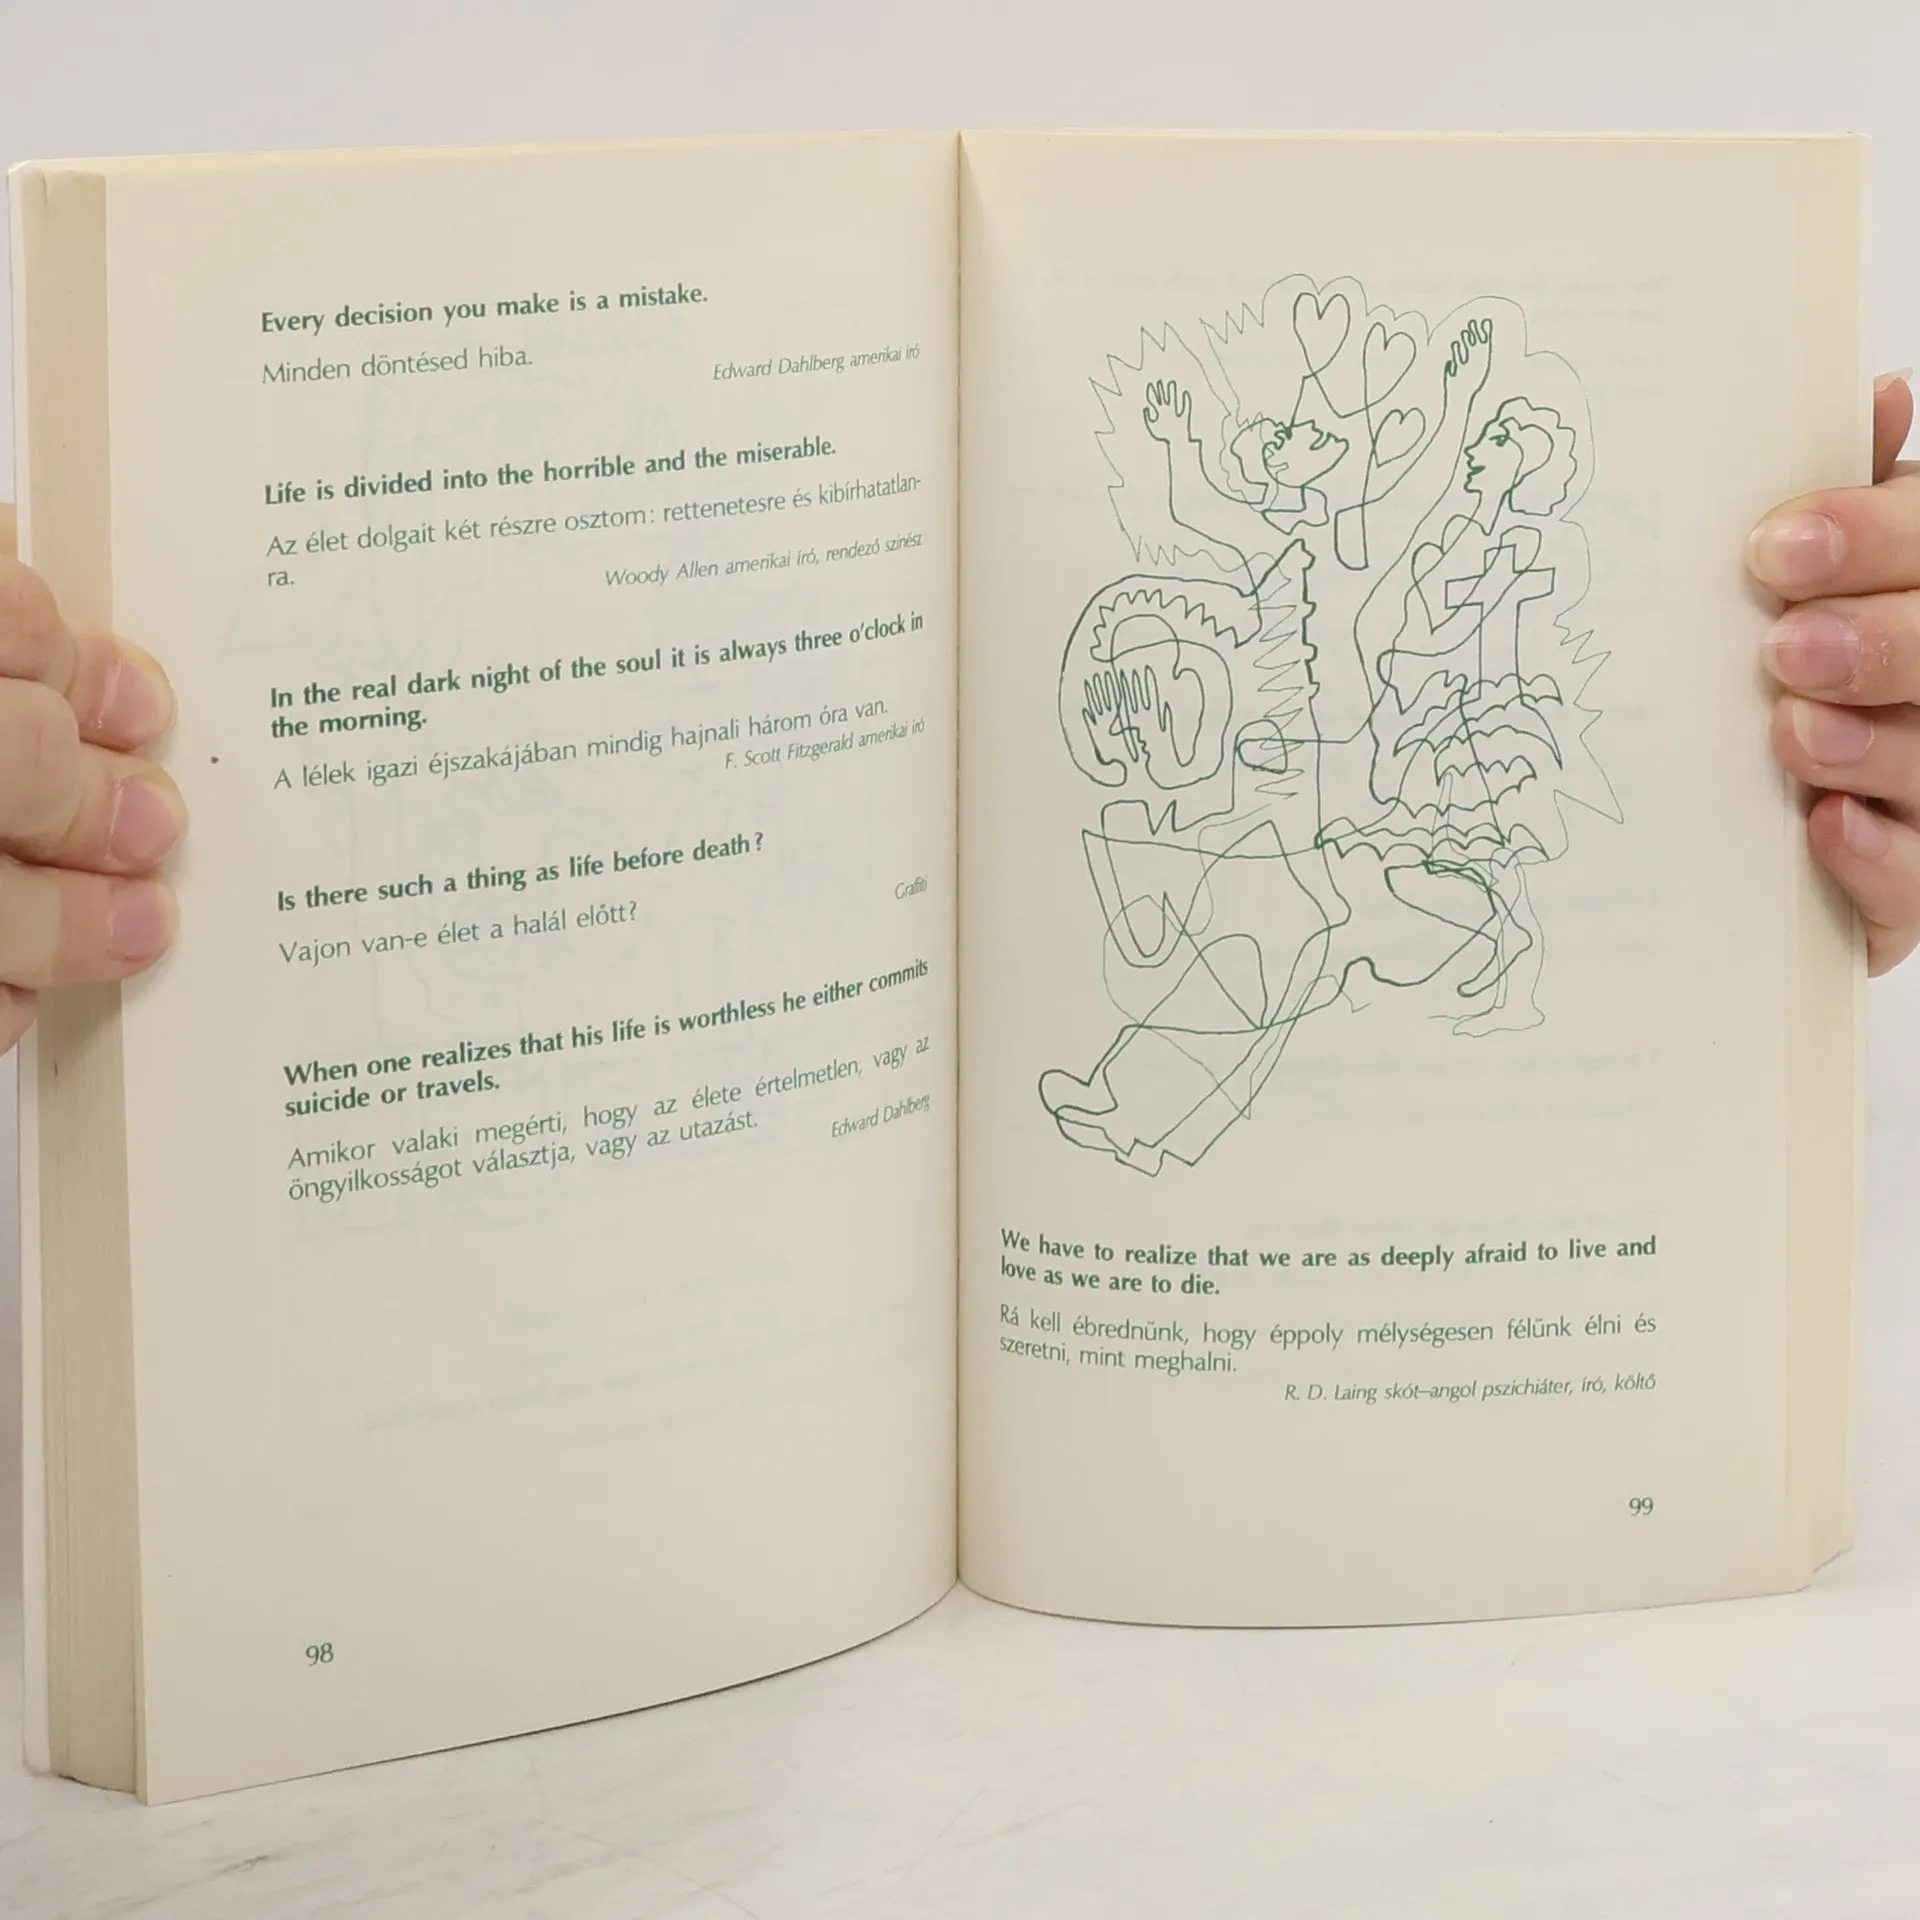 Every decision you make is a mistake.
Minden döntésed hiba.
Edward Dahlberg amerikai író
Life is divided into the horrible and the miserable.
Az élet dolgait két részre osztom: rettenetesre és kibírhatatlan-
ra.
Woody Allen amerikai író, rendező színész
In the real dark night of the soul it is always three o'clock in
the morning.
A lélek igazi éjszakájában mindig hajnali három óra van.
F. Scott Fitzgerald amerikai író
Is there such a thing as life before death?
Grafiti
Vajon van-e élet a halál előtt?
When one realizes that his life is worthless he either commits
suicide or travels.
Amikor valaki megérti, hogy az élete értelmetlen, vagy az
öngyilkosságot választja, vagy az utazást.
Edward Dahlberg
98
We have to realize that we are as deeply afraid to live and
love as we are to die.
Rá kell ébrednünk, hogy éppoly mélységesen félünk élni és
szeretni, mint meghalni.
R. D. Laing skót–angol pszichiáter, író, költő
99